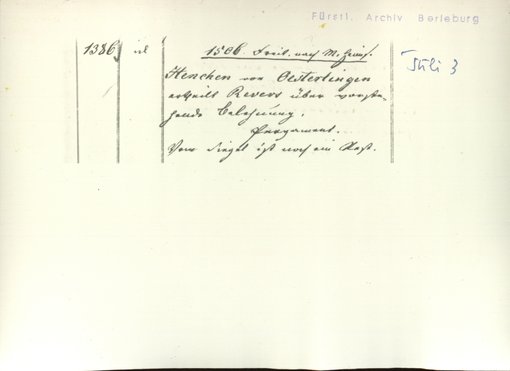 Fürstl. Archiv Berleburg
1386 1506. Freit. nach M. Heims.
Henchen von Oesterlingen
ertheilt Revers über vorste-
hende Belehnung.
Pergament.
Vom Siegel ist noch ein Rest.